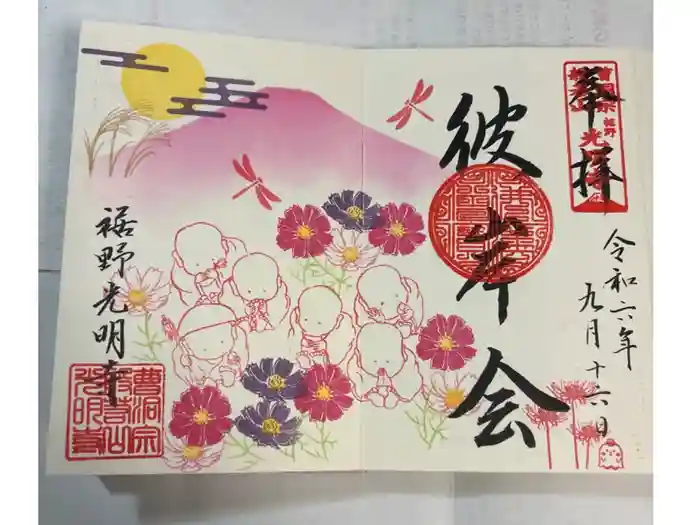 奉拝
彼岸会
令和六年
九月十六日
裾野光明寺
曹洞宗